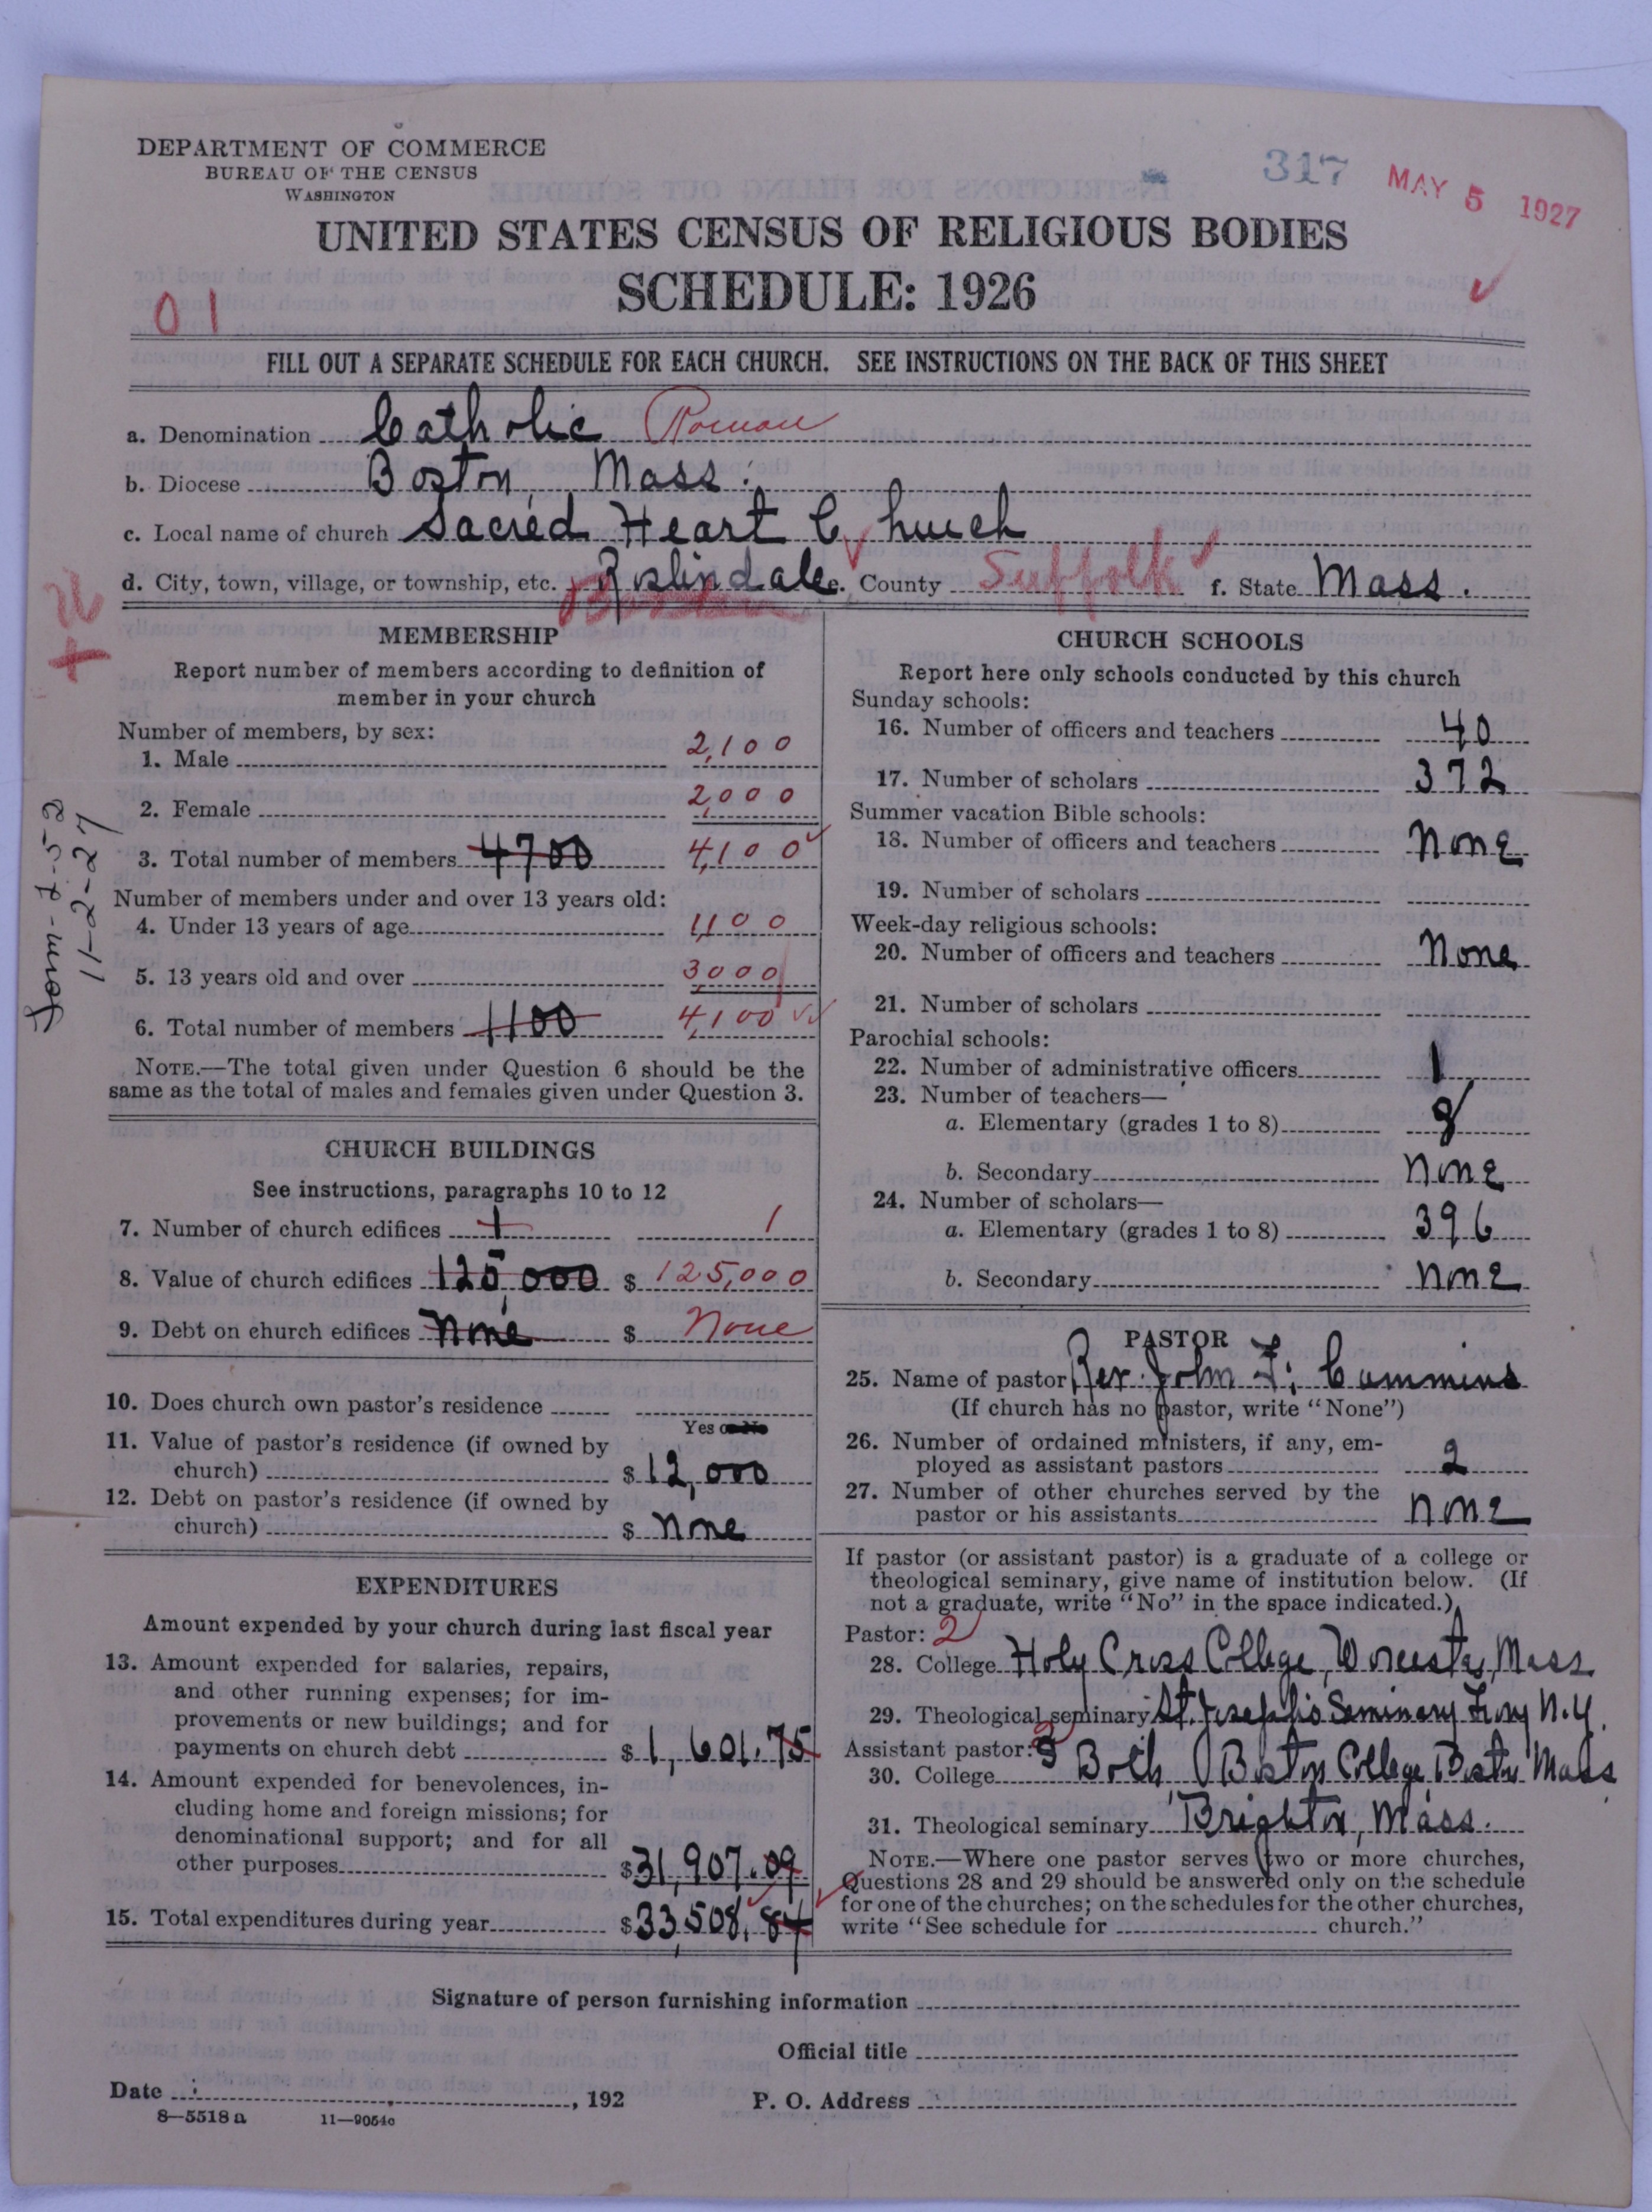 DEPARTMENT OF COMMERCE
BUREAU OF THE CENSUS
WASHINGTON
317
MAY 5 1927
UNITED STATES CENSUS OF RELIGIOUS BODIES
SCHEDULE: 1926
01
FILL OUT A SEPARATE SCHEDULE FOR EACH CHURCH. SEE INSTRUCTIONS ON THE BACK OF THIS SHEET
a. Denomination Catholic Roman
b. Diocese Boston, Mass.
c. Local name of church Sacred Heart Church
d. City, town, village, or township, etc. Roslindale e. County Suffolk f. State Mass.
MEMBERSHIP
Report number of members according to definition of
member in your church
Number of members, by sex:
1. Male 2,100
2. Female 2,000
3. Total number of members 4700 4,100
Number of members under and over 13 years old:
4. Under 13 years of age 1,100
5. 13 years old and over 3000
6. Total number of members 1100 4,100
NOTE.—The total given under Question 6 should be the
same as the total of males and females given under Question 3.
11-2-27
CHURCH BUILDINGS
See instructions, paragraphs 10 to 12
7. Number of church edifices 1 1
8. Value of church edifices 125,000 $ 125,000
9. Debt on church edifices none $ None
10. Does church own pastor's residence
Yes or No
11. Value of pastor's residence (if owned by
church) $ 12,000
12. Debt on pastor's residence (if owned by
church) $ none
EXPENDITURES
Amount expended by your church during last fiscal year
13. Amount expended for salaries, repairs,
and other running expenses; for im-
provements or new buildings; and for
payments on church debt $ 1,601.75
14. Amount expended for benevolences, in-
cluding home and foreign missions; for
denominational support; and for all
other purposes $ 31,907.09
15. Total expenditures during year $ 33,508.84
CHURCH SCHOOLS
Report here only schools conducted by this church
Sunday schools:
16. Number of officers and teachers 40
17. Number of scholars 372
Summer vacation Bible schools:
18. Number of officers and teachers none
19. Number of scholars
Week-day religious schools:
20. Number of officers and teachers none
21. Number of scholars
Parochial schools:
22. Number of administrative officers 1
23. Number of teachers—
a. Elementary (grades 1 to 8) 8
b. Secondary none
24. Number of scholars—
a. Elementary (grades 1 to 8) 396
b. Secondary none
PASTOR
25. Name of pastor Rev. John F. Cummins
(If church has no pastor, write "None")
26. Number of ordained ministers, if any, em-
ployed as assistant pastors 2
27. Number of other churches served by the
pastor or his assistants none
If pastor (or assistant pastor) is a graduate of a college or
theological seminary, give name of institution below. (If
not a graduate, write "No" in the space indicated.)
Pastor: 2
28. College Holy Cross College, Worcester, Mass
29. Theological seminary St. Joseph's Seminary Troy N.Y.
Assistant pastor:
30. College Both Boston College Boston Mass
31. Theological seminary Brighton, Mass.
NOTE.—Where one pastor serves two or more churches,
Questions 28 and 29 should be answered only on the schedule
for one of the churches; on the schedules for the other churches,
write "See schedule for church."
Signature of person furnishing information
Official title
Date , 192 P. O. Address
8—5518a 11—9054c